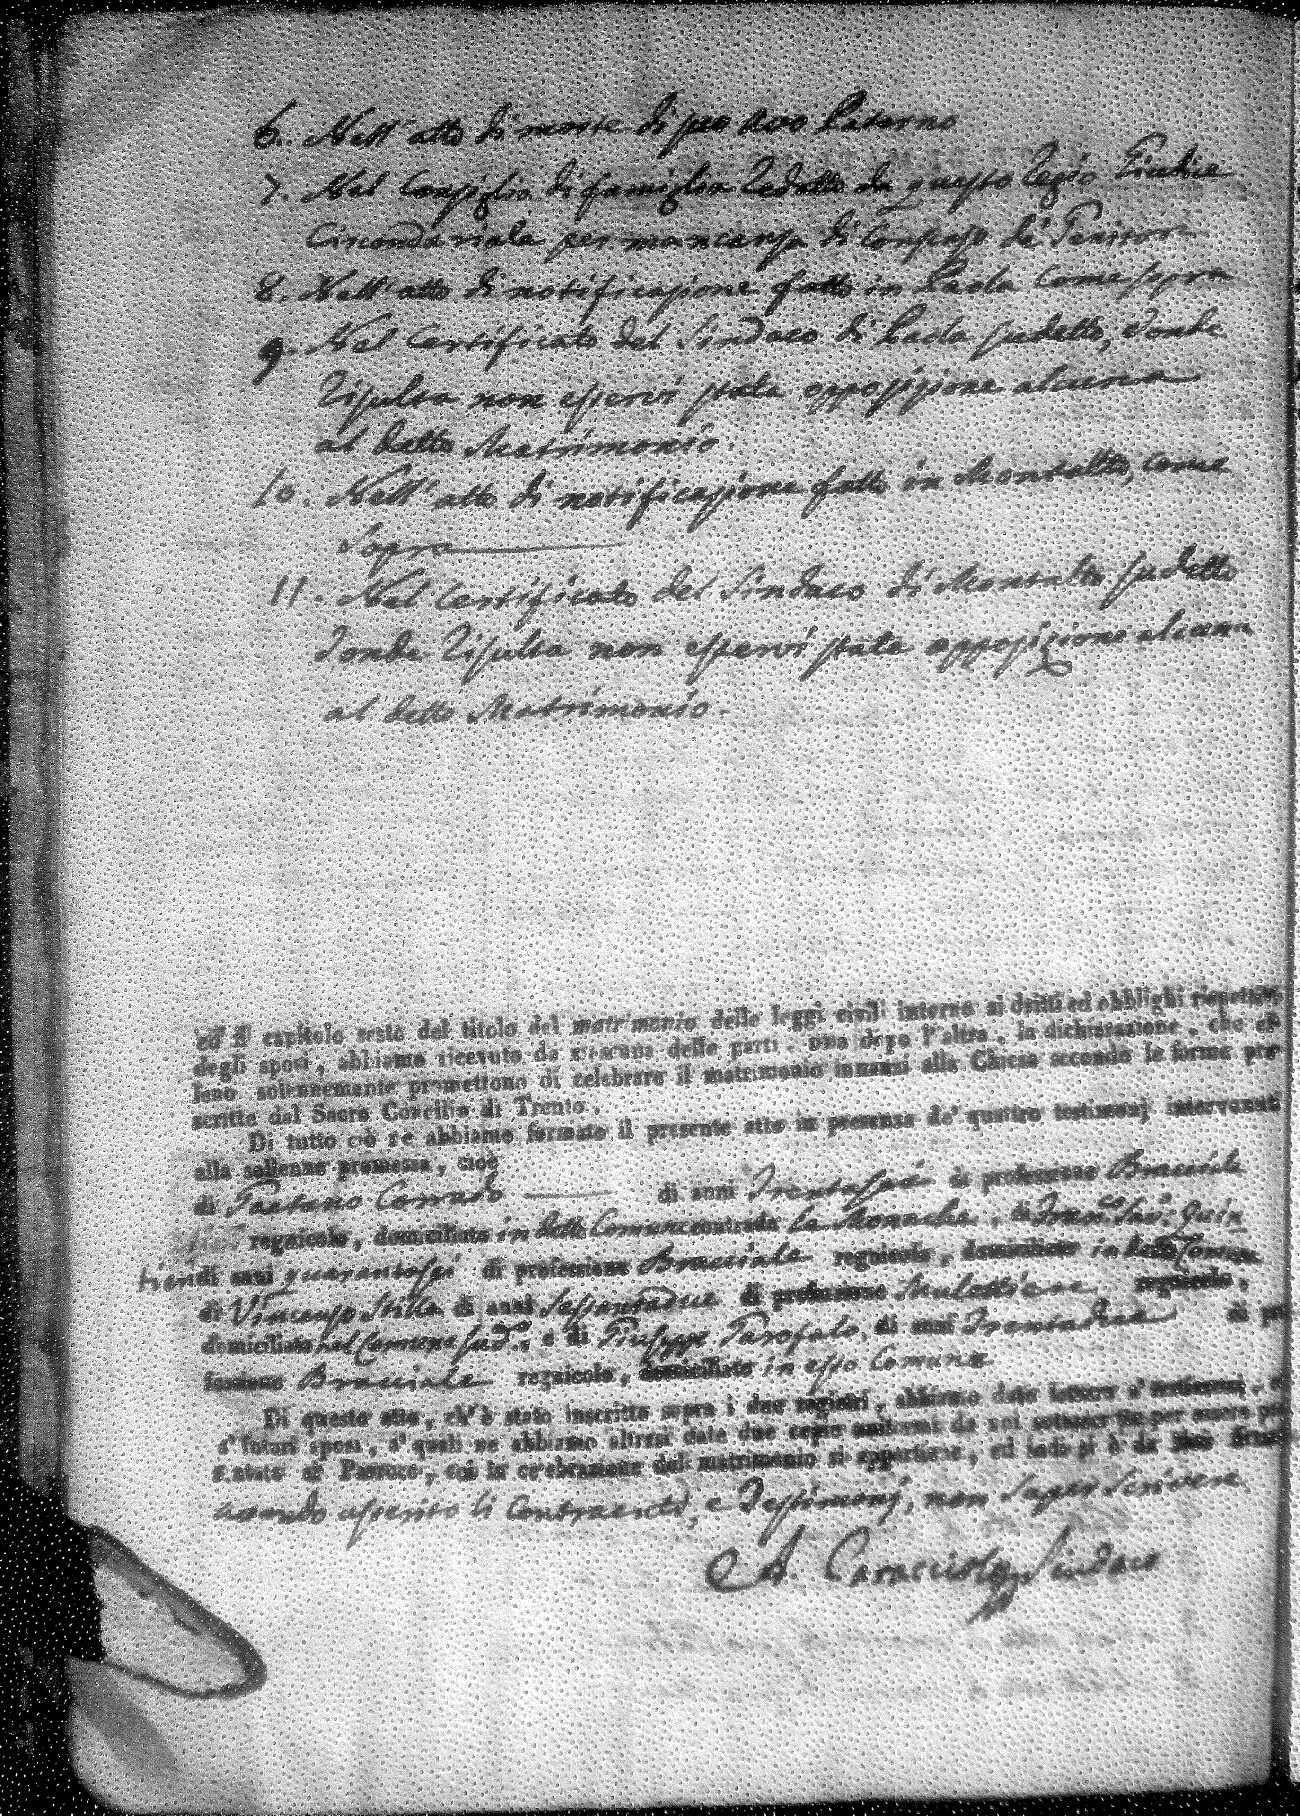 6. Nell' atto di morte di suo avo Paterno
7. Nel Consiglio di famiglia redatto da questo Regio Giudice
Circondariale per mancanza di Consenso de' Genitori
8. Nell' atto di notificazione fatto in Paola come sopra
9. Nel Certificato del Sindaco di Paola sudetto, donde
risulta non esservi stata opposizione alcuna
al detto Matrimonio.
10. Nell' atto di notificazione fatto in Montalto, come
Sopra
11. Nel Certificato del Sindaco di Montalto sudetto
donde risulta non esservi stata opposizione alcuna
al detto Matrimonio.
ed il capitolo sesto del titolo del matrimonio delle leggi civili intorno ai dritti ed obblighi rispettivi
degli sposi, abbiamo ricevuto da ciascuna delle parti, una dopo l'altra, la dichiarazione, che el-
leno solennemente promettono di celebrare il matrimonio innanzi alla Chiesa secondo le forme pre-
scritte dal Sacro Concilio di Trento.
Di tutto ciò ne abbiamo formato il presente atto in presenza de' quattro testimonj intervenuti
alla solenne promessa, cioè
di Gaetano Corrado di anni Trentasei di professione Bracciale
regnicolo, domiciliato in detto Comune contrada le Monache, di Fran.co Sav.o Quin
tieri di anni quarantasei di professione Bracciale regnicolo, domiciliato in detto Comune
di Vincenzo Stilla di anni Sessantadue di professione Mulattiere regnicolo,
domiciliato nel Comune sud.o, e di Giuseppe Garofalo, di anni Trentadue di pro
fessione Bracciale regnicolo, domiciliato in esso Comune
Di questo atto, ch'è stato inscritto sopra i due registri, abbiamo dato lettura a' testimonj, e
a' futuri sposi, a' quali ne abbiamo altresì date due copie uniformi da noi sottoscritte per essere pre
sentate al Parroco, cui la celebrazione del matrimonio si appartiene, ed indi si è da Noi firmato
avendo asserito li Contraenti, e Testimonj, non saper scrivere
A. Caracciolo Sindaco